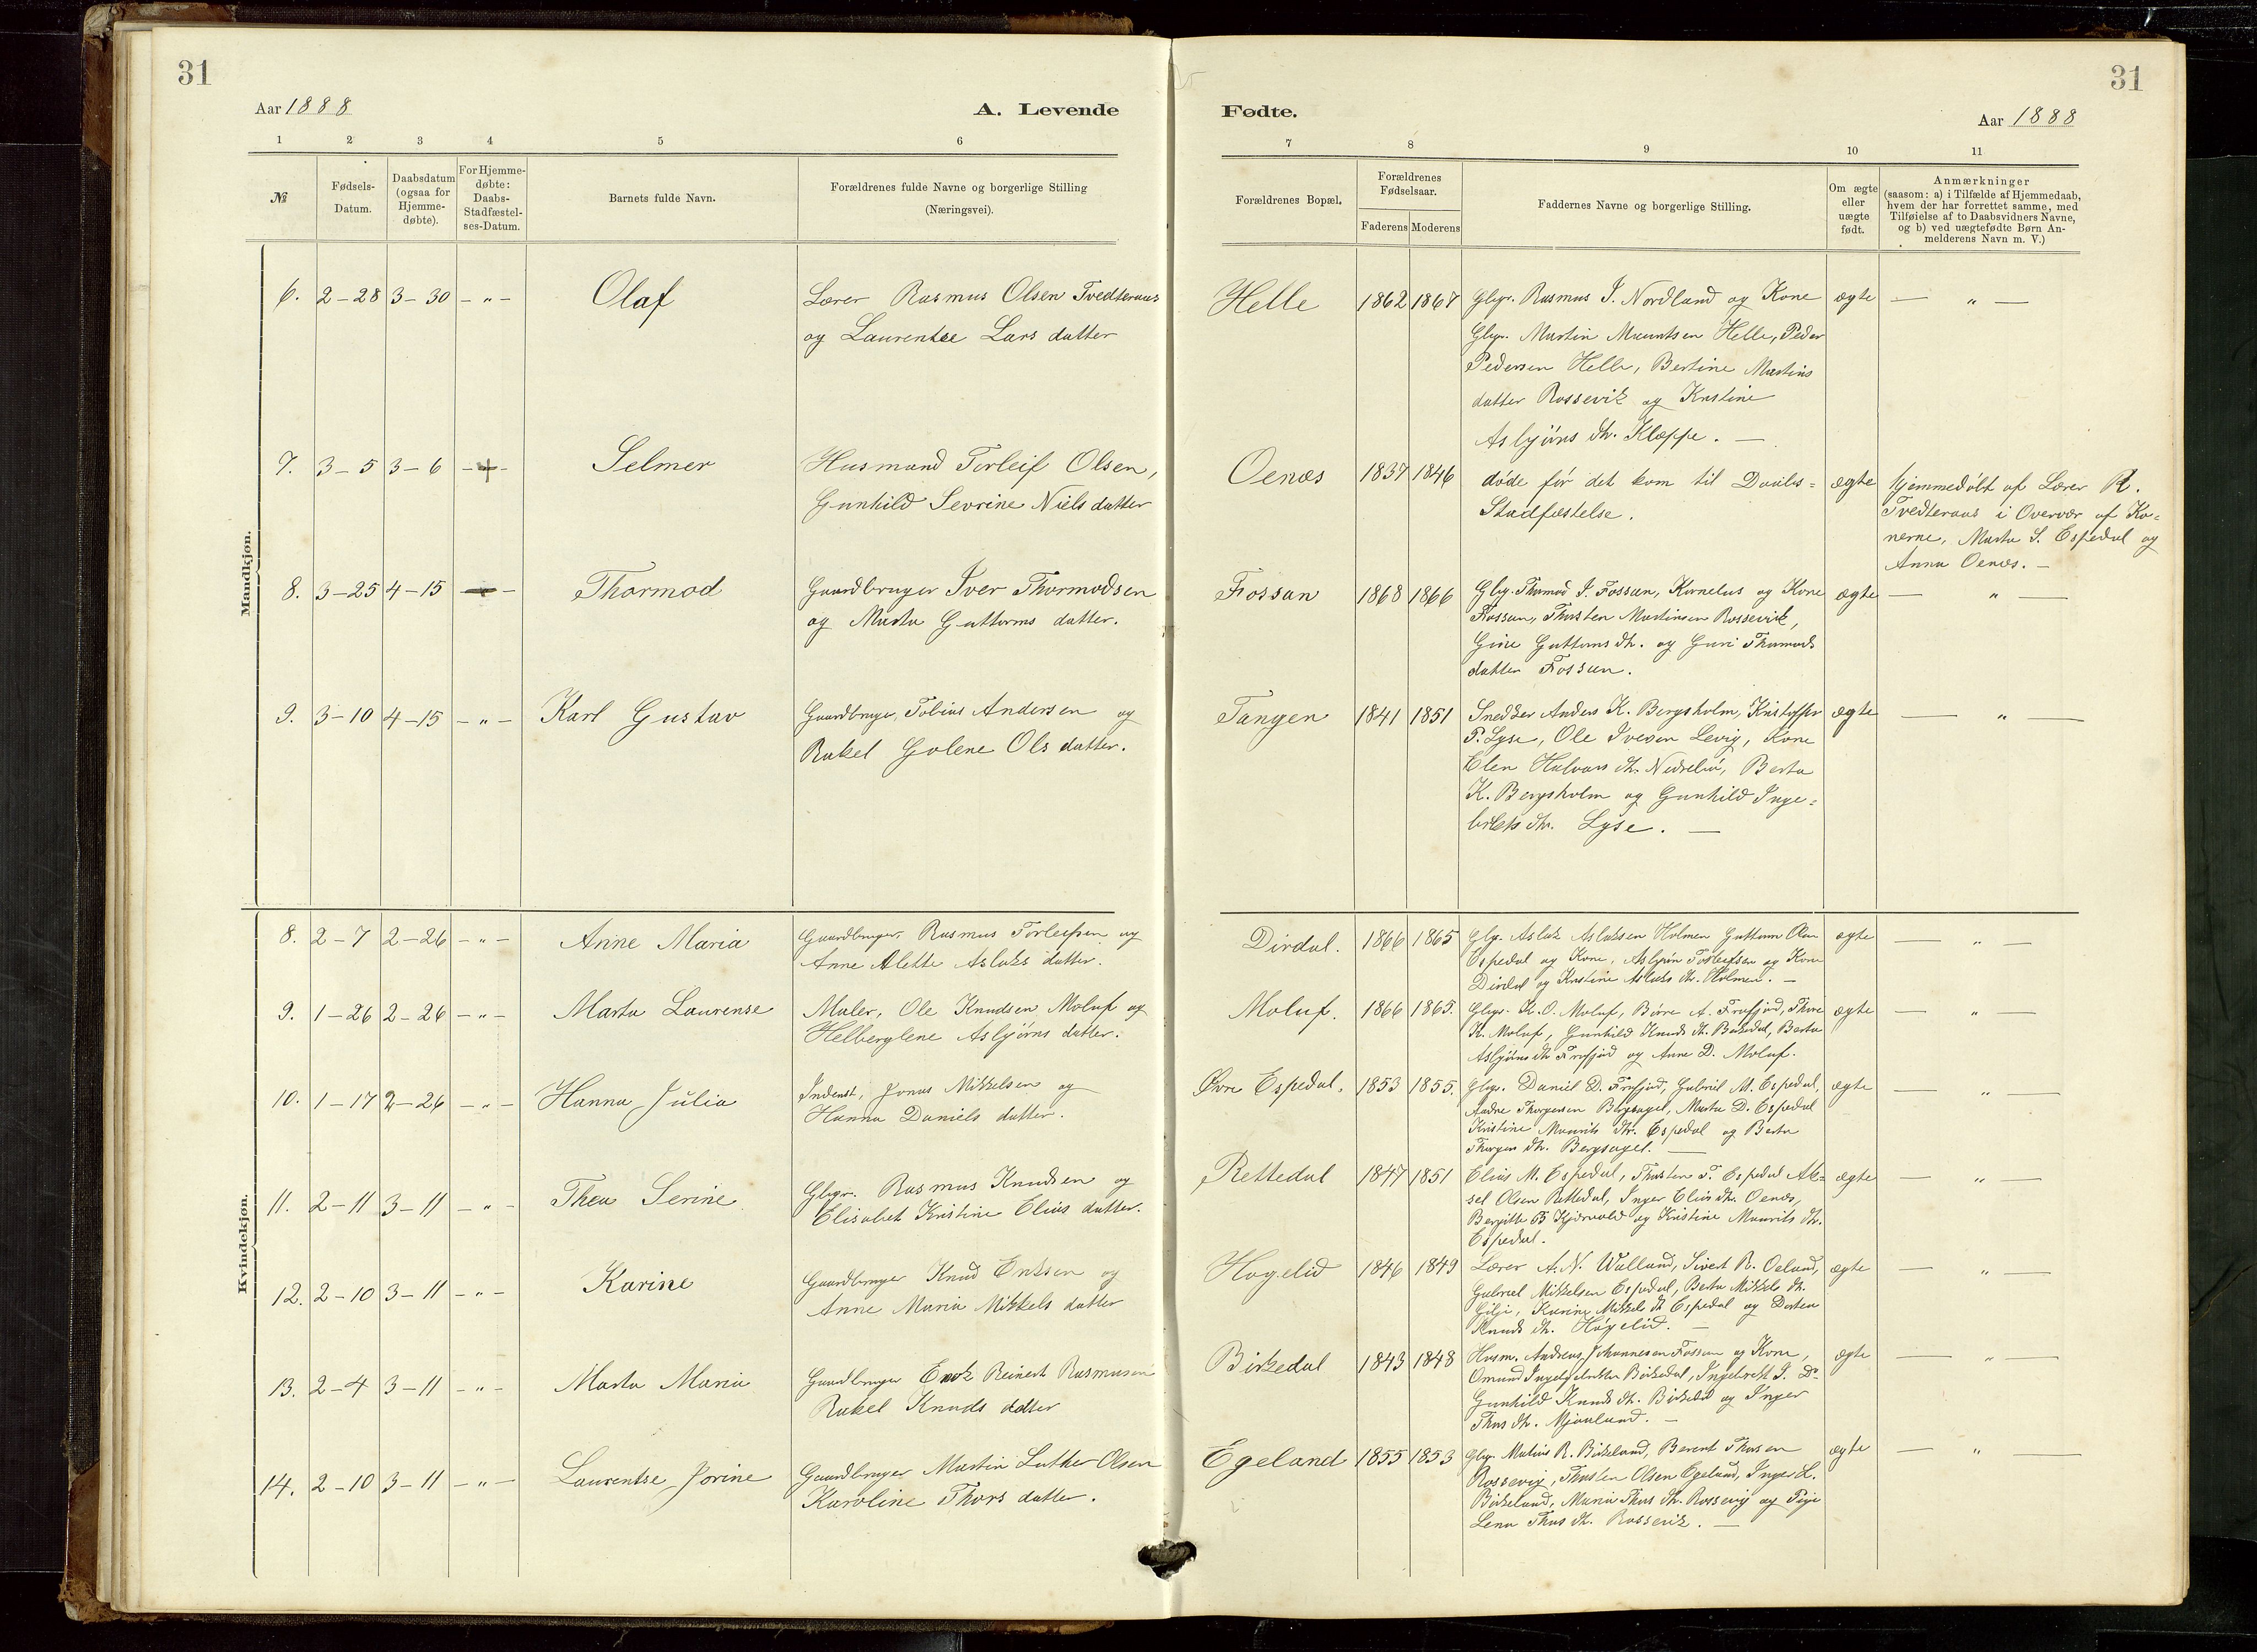 31
31
Aar 1888
A. Levende
Fødte.
Aar 1888
1 2 3 4 5 6 7 8 9 10 11
№
Fødsels-
Datum.
Daabsdatum
(ogsaa for
Hjemme-
døbte).
For Hjemme-
døbte:
Daabs-
Stadfæstel-
ses-Datum.
Barnets fulde Navn.
Forældrenes fulde Navne og borgerlige Stilling
(Næringsvei).
Forældrenes Bopæl.
Forældrenes
Fødselsaar.
Faderens Moderens
Faddernes Navne og borgerlige Stilling.
Om ægte
eller
uægte
født.
Anmærkninger
(saasom: a) i Tilfælde af Hjemmedaab,
hvem der har forrettet samme, med
Tilføielse af to Daabsvidners Navne,
og b) ved uægtefødte Børn An-
melderens Navn m. V.)
Mandkjøn.
6. 2-28 3-30 - " - Olaf
Lærer Rasmus Olsen Tvedteraas
og Laurentse Lars datter
Helle 1862 1867
Gbgr. Rasmus I. Nordland og Kone
Gbgr. Martin Mauritsen Helle, Peder
Pedersen Helle, Bertine Martins
datter Rossevik og Kristine
Asbjørns dtr. Kleppe. —
ægte — " —
7. 3-5 3-6 Selmer
Husmand Torleif Olsen,
Gunhild Sevrine Niels datter
Oenæs 1837 1846
døde før det kom til Daabs=
Stadfæstelse.
ægte
hjemmedøbt af Lærer R.
Tvedteraas i Overvær af Ko=
nerne, Marta S. Espedal og
Anna Oenæs. —
8. 3-25 4-15 Thormod
Gaardbruger Iver Thormodsen
og Marta Guttorms datter.
Fossan 1868 1866
Gbgr. Thormod I. Fossan, Kornelus og Kone
Fossan, Thorsten Martinsen Rossevik,
Gine Guttorms dtr. og Guri Thormods
datter Fossan.
ægte — " —
9. 3-10 4-15 - " - Karl Gustav
Gaardbruger, Tobias Andersen og
Rakel Golene Ols datter.
Tangen 1841 1851
Snedker Anders K. Bergsholm, Kristoffer
P. Lyse, Ole Iversen Levig, Kone
Elen Halvors dtr. Nedrelið, Berta
K. Bergsholm og Gunhild Inge=
brets dtr. Lyse. —
ægte — " —
Kvindekjøn.
8. 2-7 2-26 - " - Anne Maria
Gaardbruger, Rasmus Torleifsen og
Anne Alette Aslaks datter.
Dirdal. 1866 1865
Gbgr. Aslak Aslaksen Holmen Guttorm Olsen
Espedal og Kone, Asbjørn Torleifsen og Kone
Dirdal og Kristine Aslaks dtr. Holmen. —
ægte — " —
9. 1-26 2-26 - " - Marta Laurense
Maler, Ole Knudsen Molaf og
Helberglene Asbjørns datter.
Molaf. 1866 1865.
Gbgr. K. O. Molaf, Børre A. Frafjord, Thore
K. Molaf, Gunhild Knuds dtr. Birkedal, Berta
Asbjørns dtr. Frafjord og Anne D. Molaf.
ægte — " —
10. 1-17 2-26 - " - Hanna Julia
Inderst, Jonas Mikkelsen og
Hanna Daniels datter.
Øvre Espedal. 1853 1855.
Gbgr. Daniel D. Frafjord, Gabriel M. Espedal,
Andre Thorgersen Bergsagel, Marta D. Espedal
Kristine Maurits dtr. Espedal og Berta
Thorgers dtr. Bergsagel. —
ægte — " —
11. 2-11 3-11 - " - Thea Serine
Gbgr. Rasmus Knudsen og
Elisabet Kristine Elias datter.
Rettedal 1847 1851
Elias M. Espedal, Thorsten T. Espedal Ak=
sel Olsen Rettedal, Inger Elias dtr. Oenæs,
Bergitte B. Kjærvold og Kristine Maurits dtr.
Espedal.
ægte — " —
12. 2-10 3-11 - " - Karine
Gaardbruger Knud Eriksen og
Anne Maria Mikkels datter
Høgelid 1846 1849
Lærer A. N. Walland, Sivert R. Oeland,
Gabriel Mikkelsen Espedal, Berta Mikkels dtr.
Gilje, Karine Mikkels dtr. Espedal og Dortea
Knuds dtr. Høgelid. —
ægte — " —
13. 2-4 3-11 - " - Marta Maria
Gaardbruger Enok Reinert Rasmusen
Rakel Knuds datter
Birkedal 1843 1848
Husm. Andreas Johannesen Fossan og Kone,
Omund Birkedal, Ingebrett I. Do
Gunhild Knuds dtr. Birkedal og Inger
Thors dtr. Mjaaland. —
ægte — " —
14. 2-10 3-11 - " - Laurentse Jorine
Gaardbruger Martin Luther Olsen
Karoline Thors datter.
Egeland 1855 1853
Gbgr. Matias R. Birkeland, Berent Thorsen
Rossevig, Thorsten Olsen Egeland, Inger L.
Birkeland, Maria Thors dtr. Rossevig og
Lena Thors dtr. Rossevik. —
ægte — " —